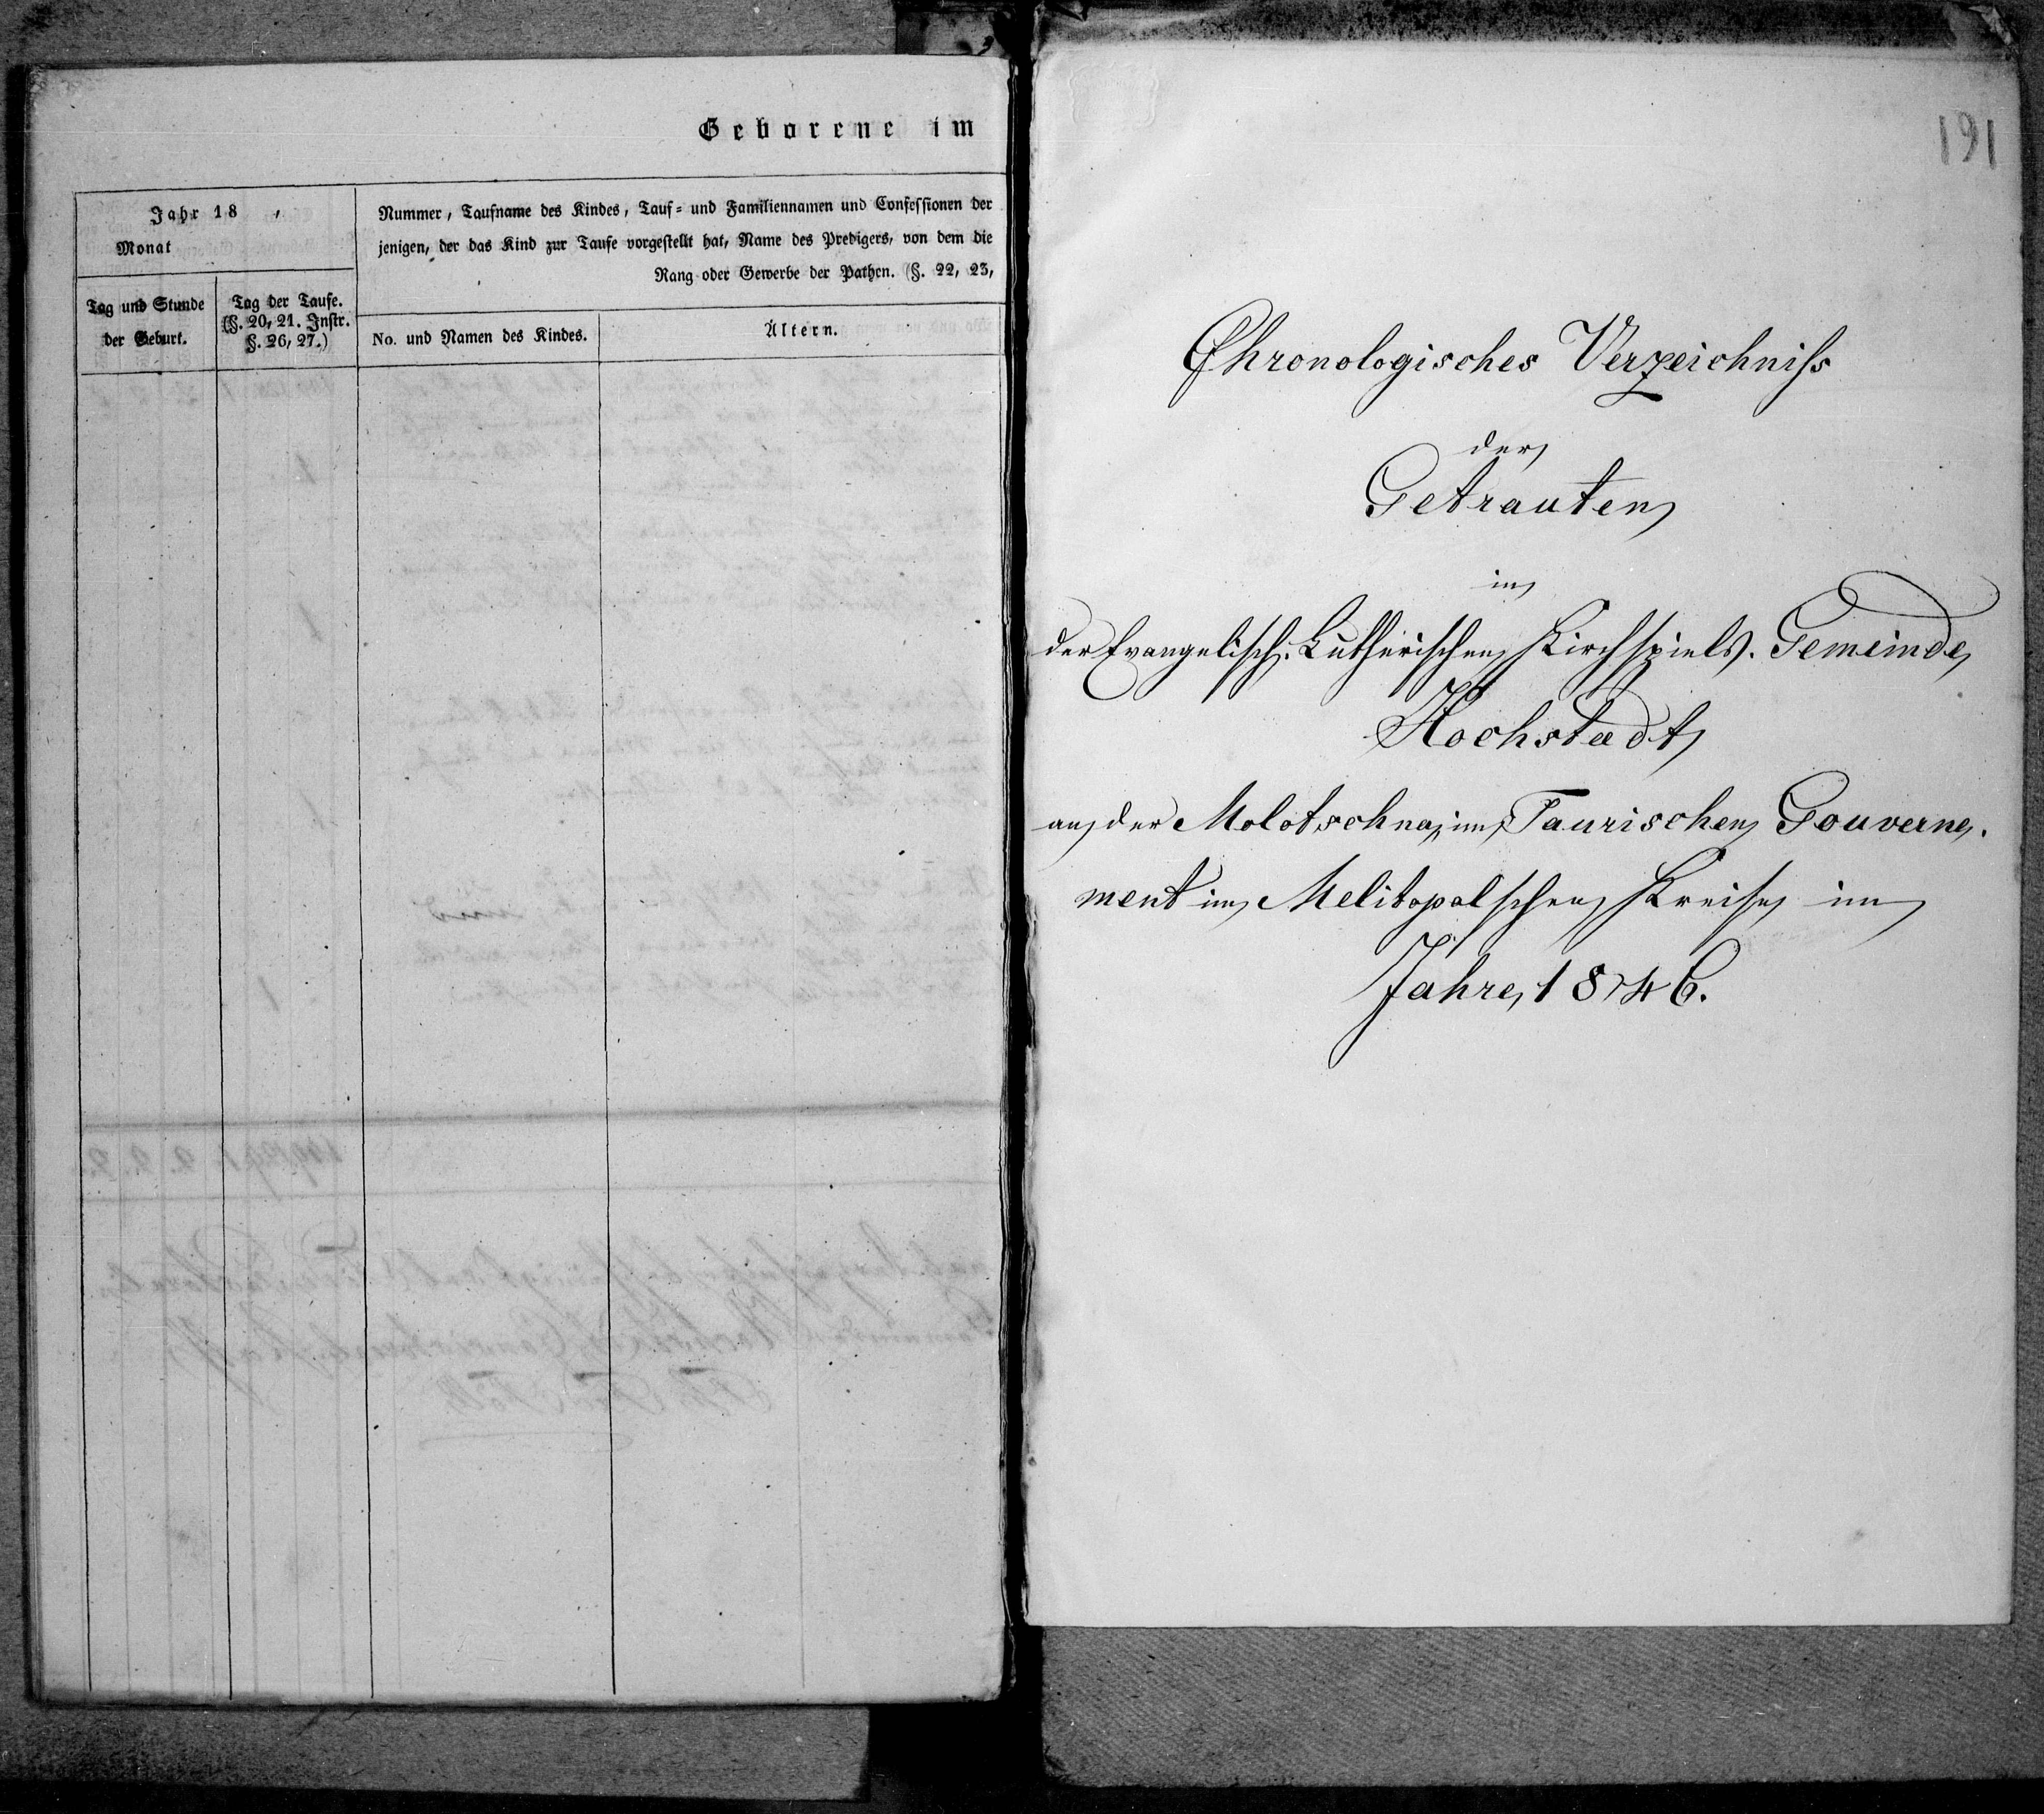 Geborene im
Jahr 18 ,
Monat
Nummer, Taufname des Kindes, Tauf- und Familiennamen und Confessionen der
jenigen, der das Kind zur Taufe vorgestellt hat, Name des Predigers, von dem die
Rang oder Gewerbe der Pathen. (§. 22, 23,
Tag und Stunde
der Geburt.
Tag der Taufe.
(§. 20, 21. Instr.
§. 26, 27.)
No. und Namen des Kindes.
Ältern.
191
Chronologisches Verzeichniss
der
Getrauten
in
der Evangelisch. Lutherischen Kirchspiels. Gemeinde
Hochstadt
an der Molotschna, im Taurischen Gouverne.
ment im Melitopolschen Kreise im
Jahre 1846.